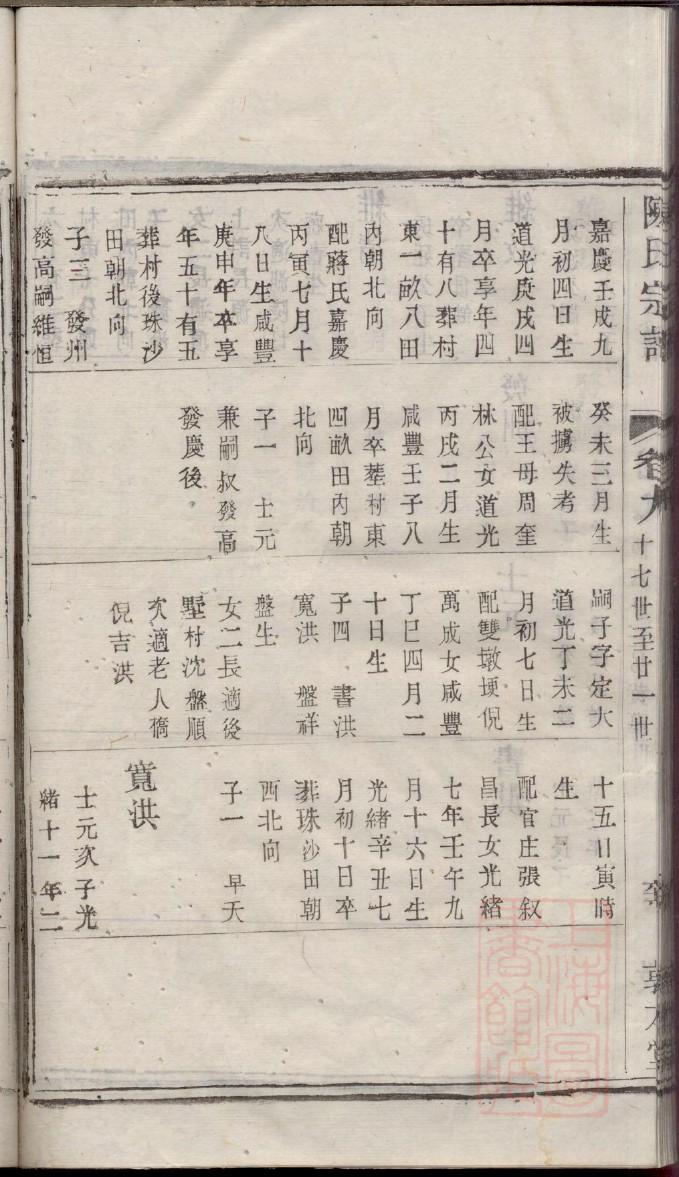 陳氏宗譜
卷九
十七世至廿一世
嘉慶壬戌九
月初四日生
道光庚戌四
月卒享年四
十有八葬村
東一畝八田
內朝北向
配蔣氏嘉慶
丙寅七月十
八日生咸豐
庚申年卒享
年五十有五
葬村後珠沙
田朝北向
子三 發州
發高嗣維恒
癸未三月生
被擄失考
配王母周奎
林公女道光
丙戌二月生
咸豐壬子八
月卒塟村東
四畝田內朝
北向
子一 士元
兼嗣叔發高
發慶後
嗣子字定大
道光丁未二
月初七日生
配雙墩埂倪
萬成女咸豐
丁巳四月二
十日生
子四 書洪
寬洪 盤祥
盤生
女二長適後
墅村沈盤順
次適老人橋
倪吉洪
十五日寅時
生
配官庄張叙
昌長女光緒
七年壬午九
月十六日生
光緒辛丑七
月初十日卒
葬珠沙田朝
西北向
子一 早夭
寬洪
士元次子光
緒十一年二
上海圖書館藏